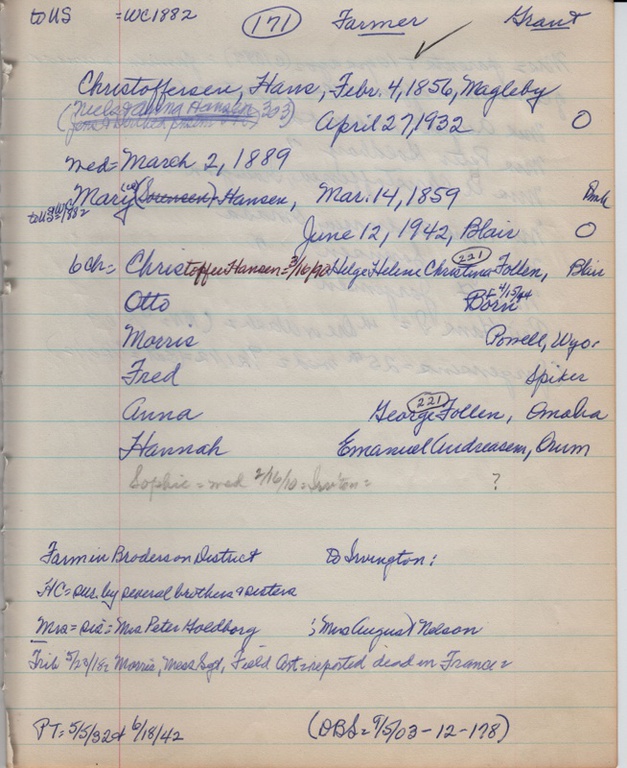 to US = WC 1882 (171) Farmer Grant
Christoffersen, Hans, Febr. 4, 1856, Magleby
Hansen 303)
April 27, 1932 O
wed = March 2, 1889
Mary (Sorensen) Hansen, Mar. 14, 1859 Dmk
to US = WC 1882
June 12, 1942, Blair O
6 ch = Christoffer Hansen = 3/16/90 Helge Helene Christina Follen, (221) Blair
Otto Born 4/15/94
Morris Powell, Wyo.
Fred Spiker
Anna George Follen, (221) Omaha
Hannah Emanuel Andreasen, Orum
Sophie = wed 2/16/10 = Irv'ton = ?
Farm in Broderson District To Irvington;
HC = sur. by several brothers & sisters
Mrs = sis = Mrs Peter Goldborg ; Mrs August Nelson
Trib 5/22/18 = Morris, Mess Sgt, Field Art = reported dead in France =
PT = 5/5/32 + 6/18/42 (OBS = 9/5/03-12-178)